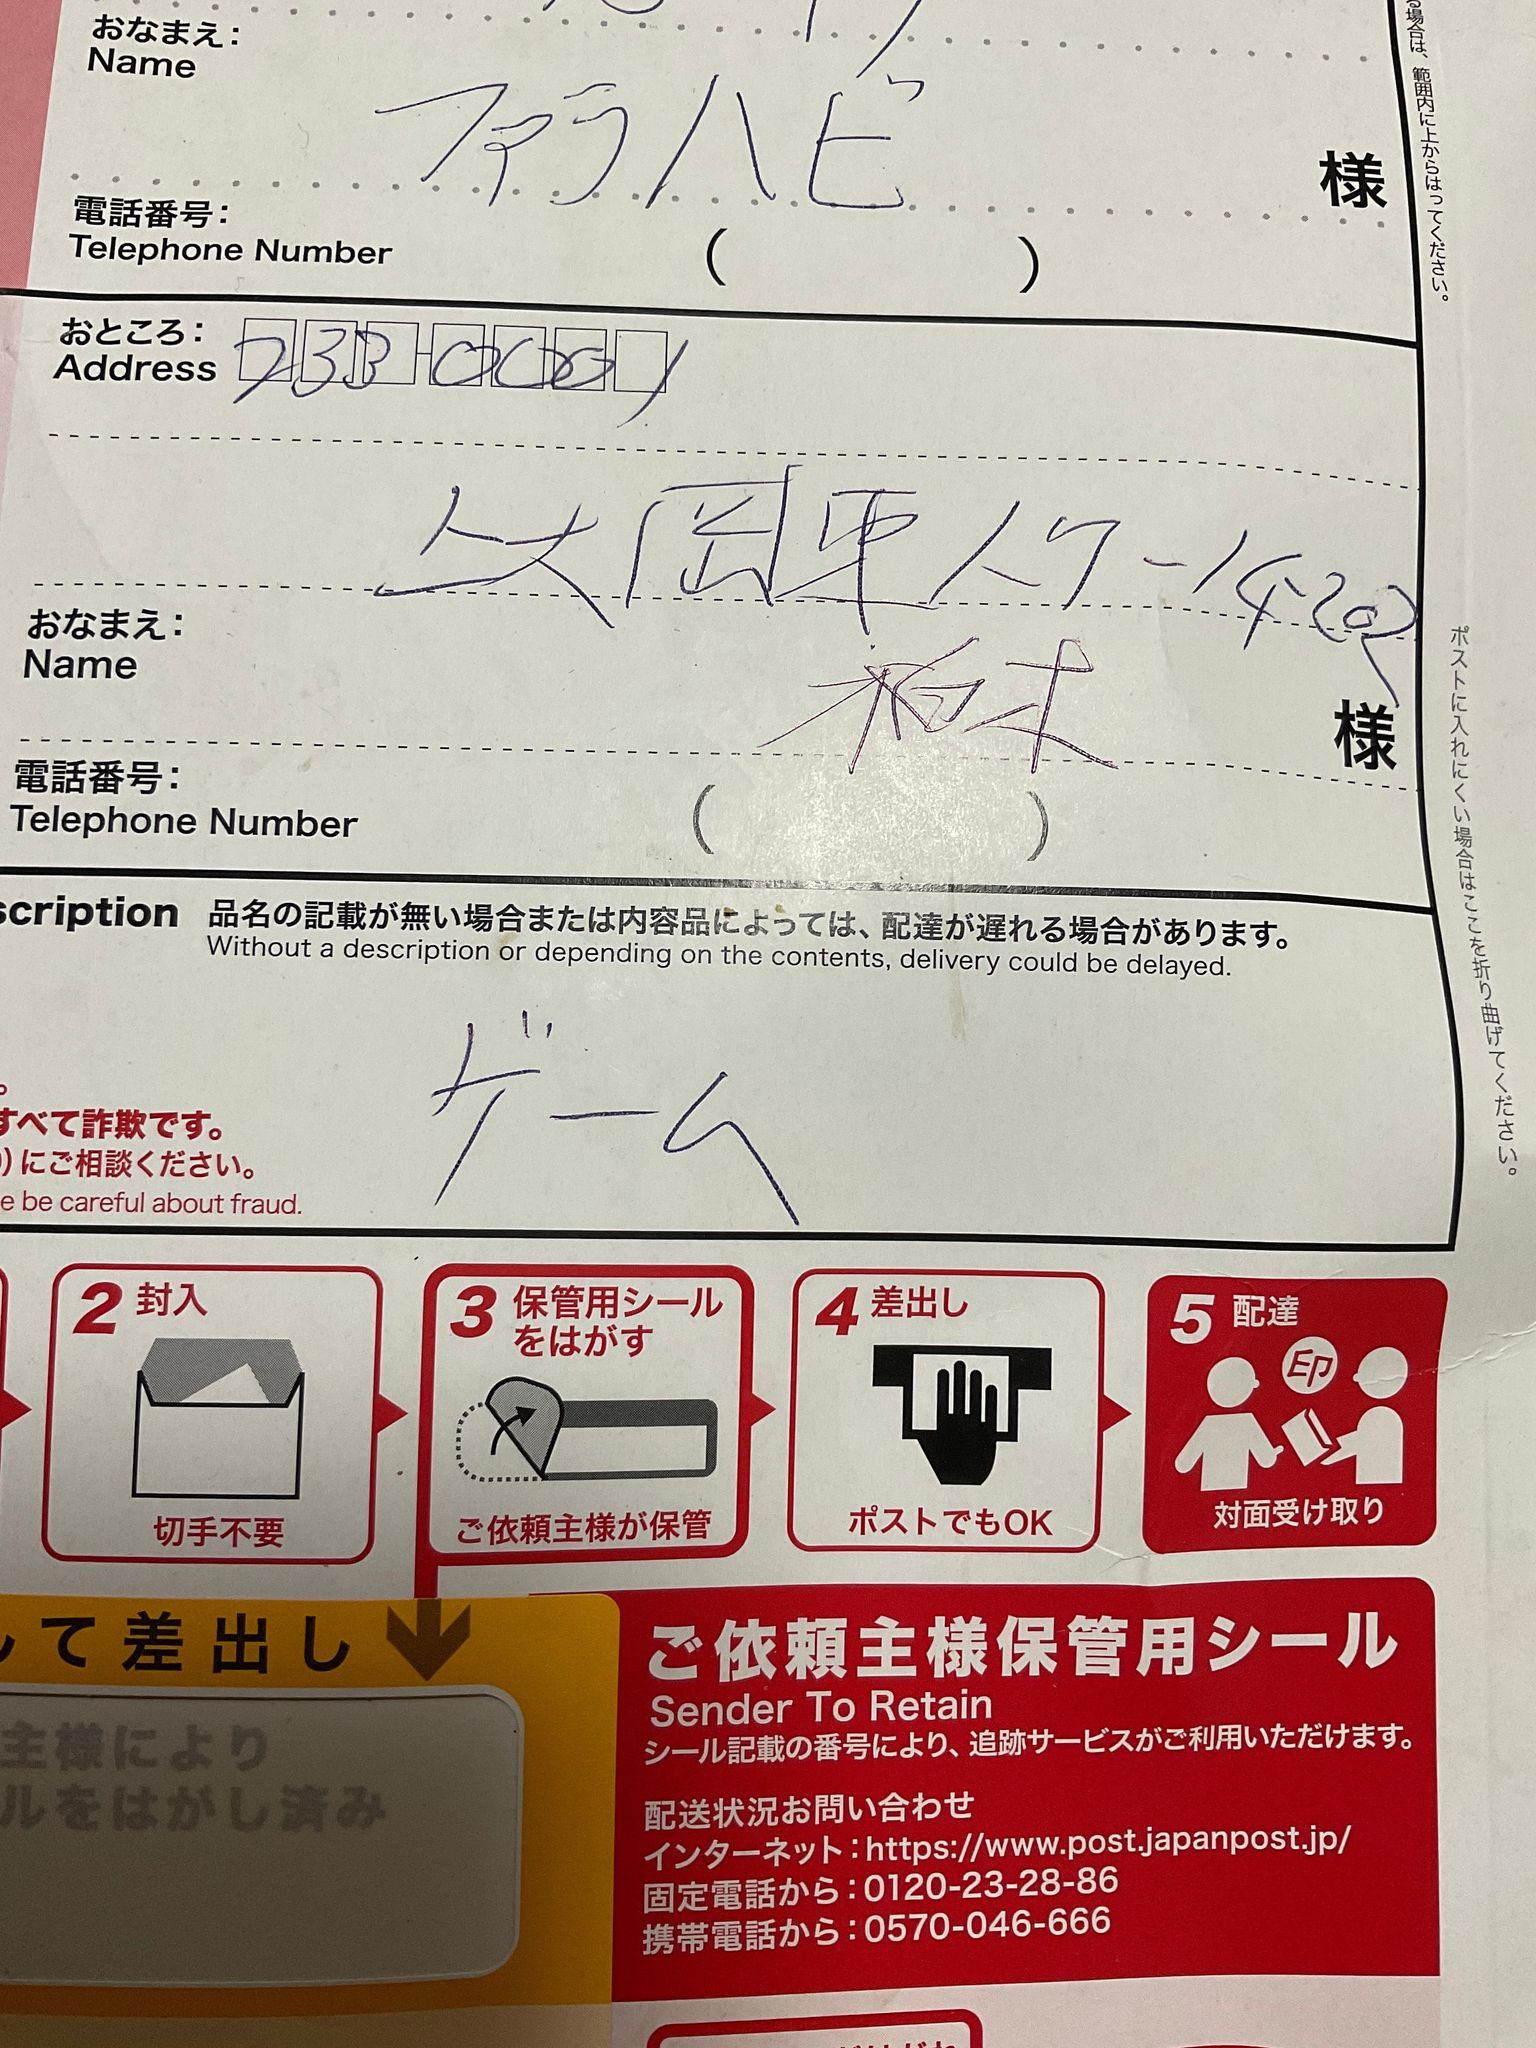 る場合は、範囲内に上からはってください。
おなまえ：
Name
ファラハビ
様
電話番号：
Telephone Number
(　　)
おところ：
Address
233-0001
上大岡東
-14-202
おなまえ：
Name
様
電話番号：
Telephone Number
(　　)
ポストに入れにくい場合はここを折り曲げてください。
scription 品名の記載が無い場合または内容品によっては、配達が遅れる場合があります。
Without a description or depending on the contents, delivery could be delayed.
ゲーム
。
すべて詐欺です。
)にご相談ください。
e be careful about fraud.
2 封入
切手不要
3 保管用シール
をはがす
ご依頼主様が保管
4 差出し
ポストでもOK
5 配達
印
対面受け取り
して差出し
主様により
ルをはがし済み
ご依頼主様保管用シール
Sender To Retain
シール記載の番号により、追跡サービスがご利用いただけます。
配送状況お問い合わせ
インターネット：https://www.post.japanpost.jp/
固定電話から：0120-23-28-86
携帯電話から：0570-046-666